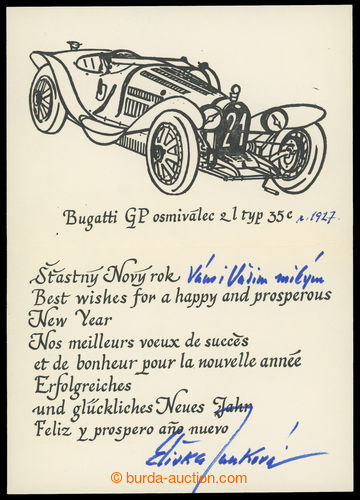 21
Bugatti GP osmiválec 2 l typ 35c r. 1927.
Šťastný Nový rok Vám i Vašim milým
Best wishes for a happy and prosperous
New Year
Nos meilleurs voeux de succès
et de bonheur pour la nouvelle année
Erfolgreiches
und glückliches Neues Jahr
Feliz y prospero año nuevo
Eliška Junková
burda-auction.com